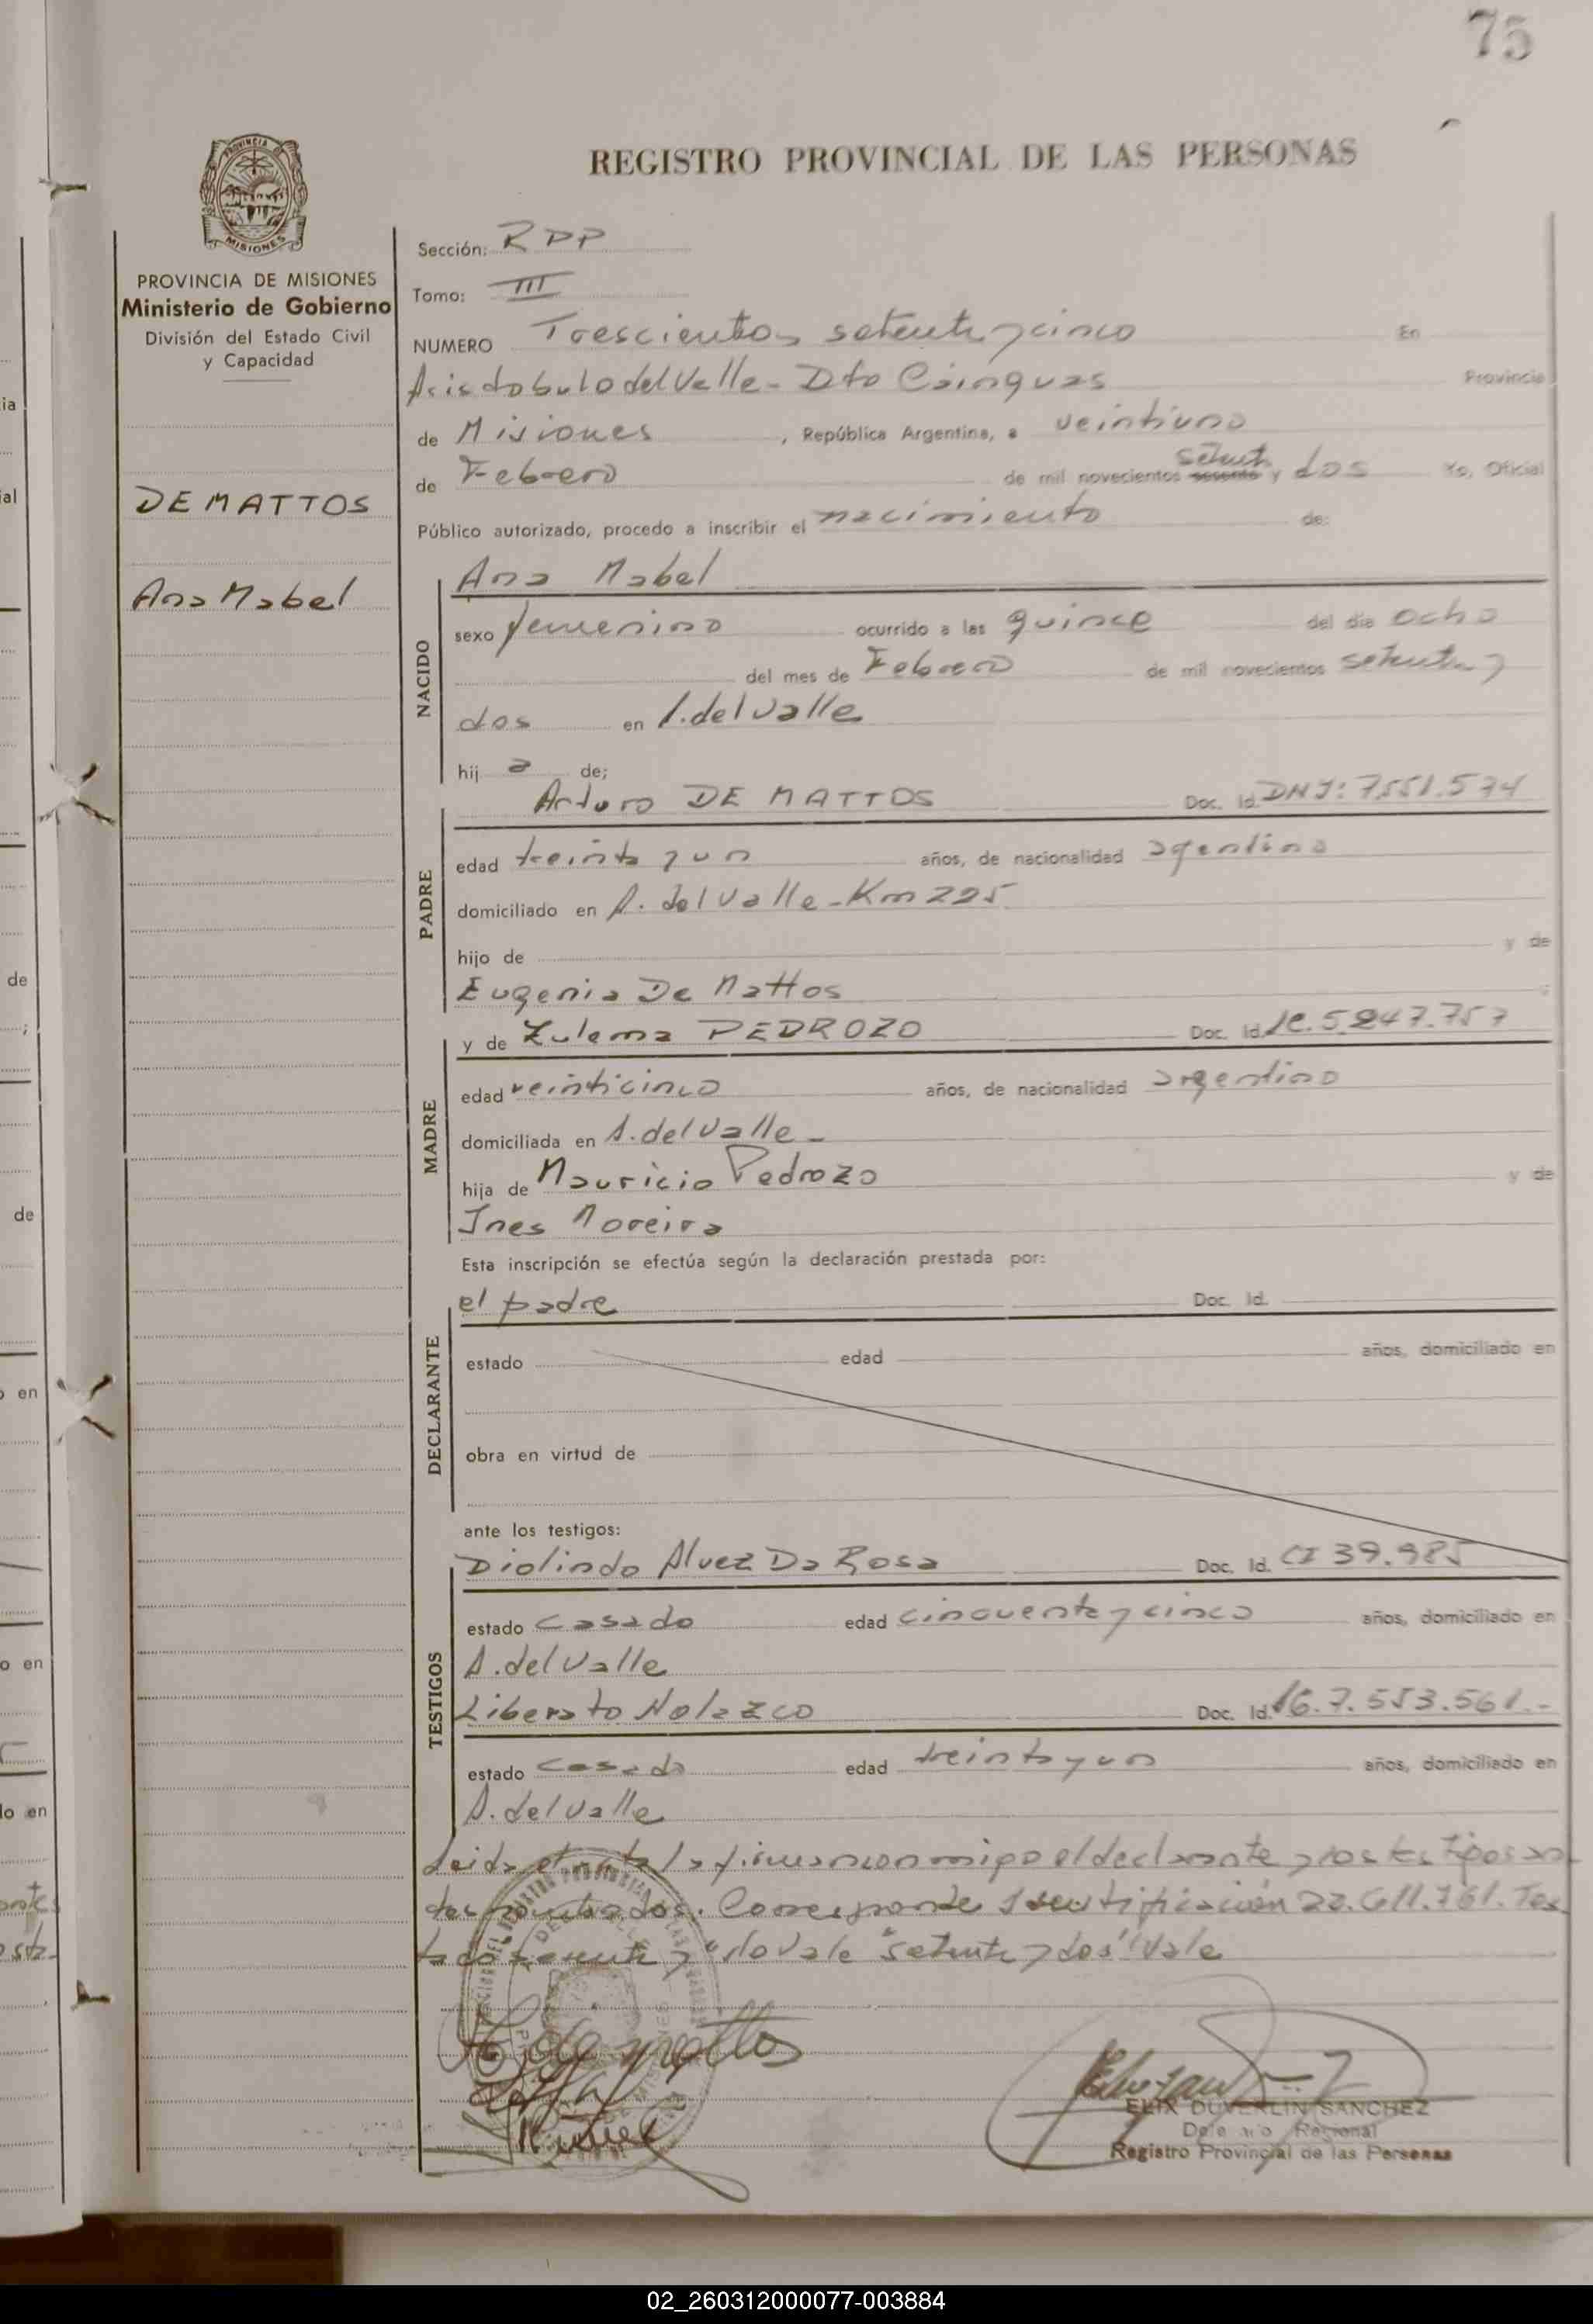 75
REGISTRO PROVINCIAL DE LAS PERSONAS
PROVINCIA DE MISIONES
Ministerio de Gobierno
División del Estado Civil
y Capacidad
DE MATTOS
Ana Mabel
Sección: RPP
Tomo: III
NUMERO Trescientos setenta y cinco En
Aristobulo del Valle - Dto Cainguas Provincia
de Misiones, República Argentina, a veintiuno
de Febrero de mil novecientos setenta sesenta y dos Yo, Oficial
Público autorizado, procedo a inscribir el nacimiento de:
NACIDO
Ana Mabel
sexo femenino ocurrido a las quince del dia ocho
del mes de Febrero de mil novecientos setenta y
dos en A. del Valle
hij a de;
PADRE
Arturo DE MATTOS Doc. Id. DNI: 7.551.574
edad treinta y un años, de nacionalidad argentina
domiciliado en A. del Valle - Km 225
hijo de y de
Eugenia De Mattos ;
MADRE
y de Zulema PEDROZO Doc. Id. LC. 5.247.757
edad veinticinco años, de nacionalidad argentino
domiciliada en A. del Valle -
hija de Mauricio Pedrozo y de
Ines Moreira
Esta inscripción se efectúa según la declaración prestada por:
DECLARANTE
el padre Doc. Id.
estado edad años, domiciliado en
obra en virtud de
ante los testigos:
TESTIGOS
Diolindo Alvez Da Rosa Doc. Id. CI 39.985
estado casado edad cincuenta y cinco años, domiciliado en
A. del Valle
Liberato Nolazco Doc. Id. 7.553.561.-
estado casado edad treinta y un años, domiciliado en
A. del Valle
Leida el acta la firman conmigo el declarante y los testigos an
tes nombrados. Corresponde Identificación 22.611.761. Tes
tado sesenta y "no vale "setenta y dos" Vale
A. de mattos
ELIX DUVERLIN SANCHEZ
Dele ado Regional
Registro Provincial de las Personas
02_260312000077-003884